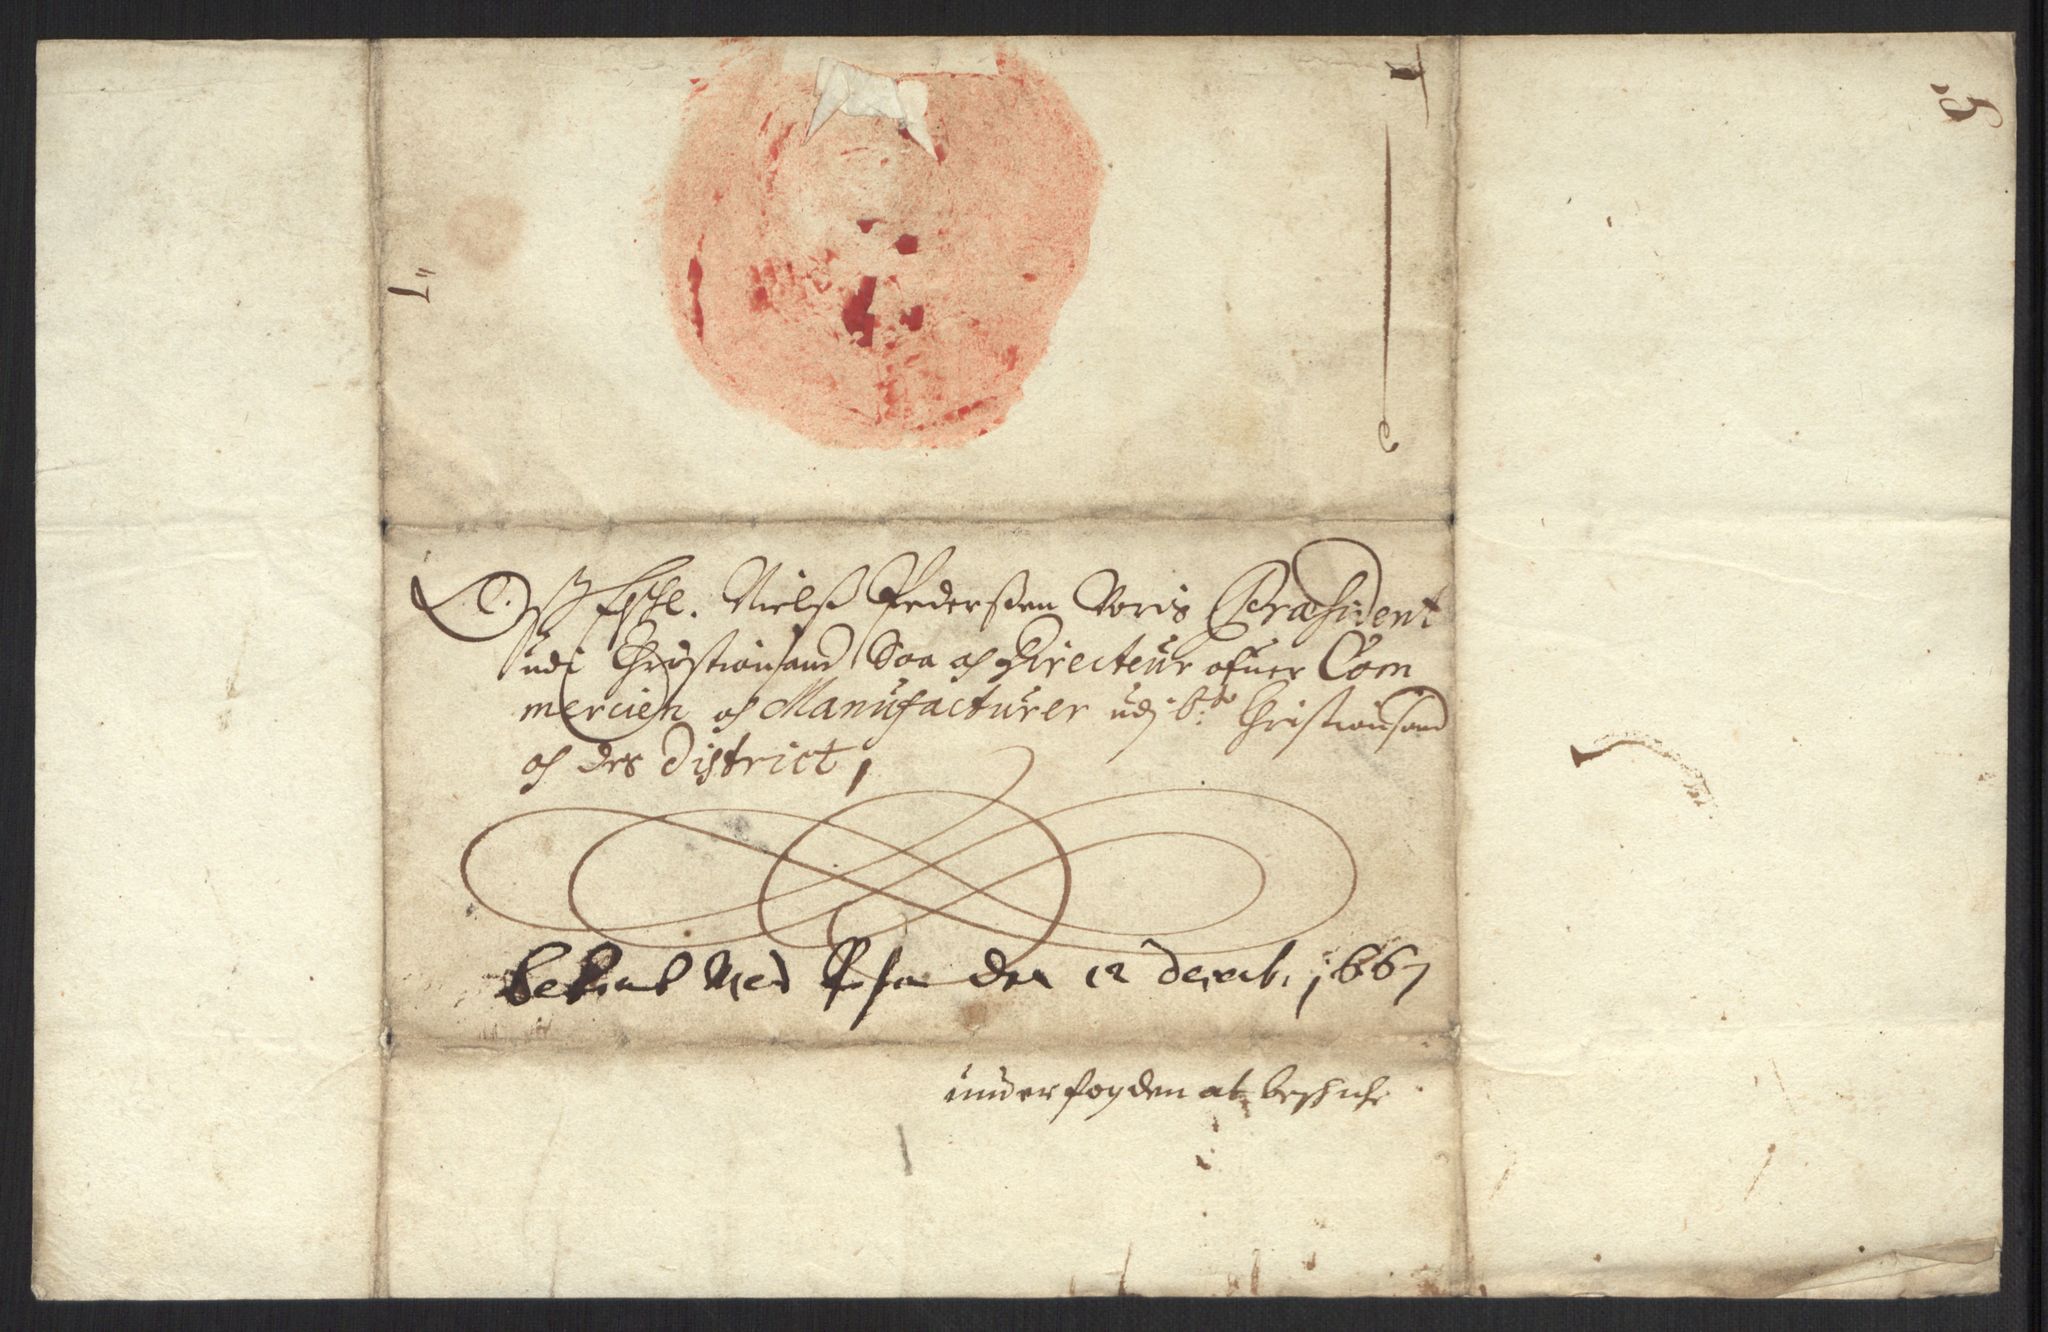 Oß Elskl. Nielß Pederßen Voris Præsident
udi Christiansand Saa oc Directeur ofuer Com
mercien oc Manufacturer udj b.te Christiansand
oc des District,
bekomt med Posten den 12 decemb. 1667
underfogden at besørge